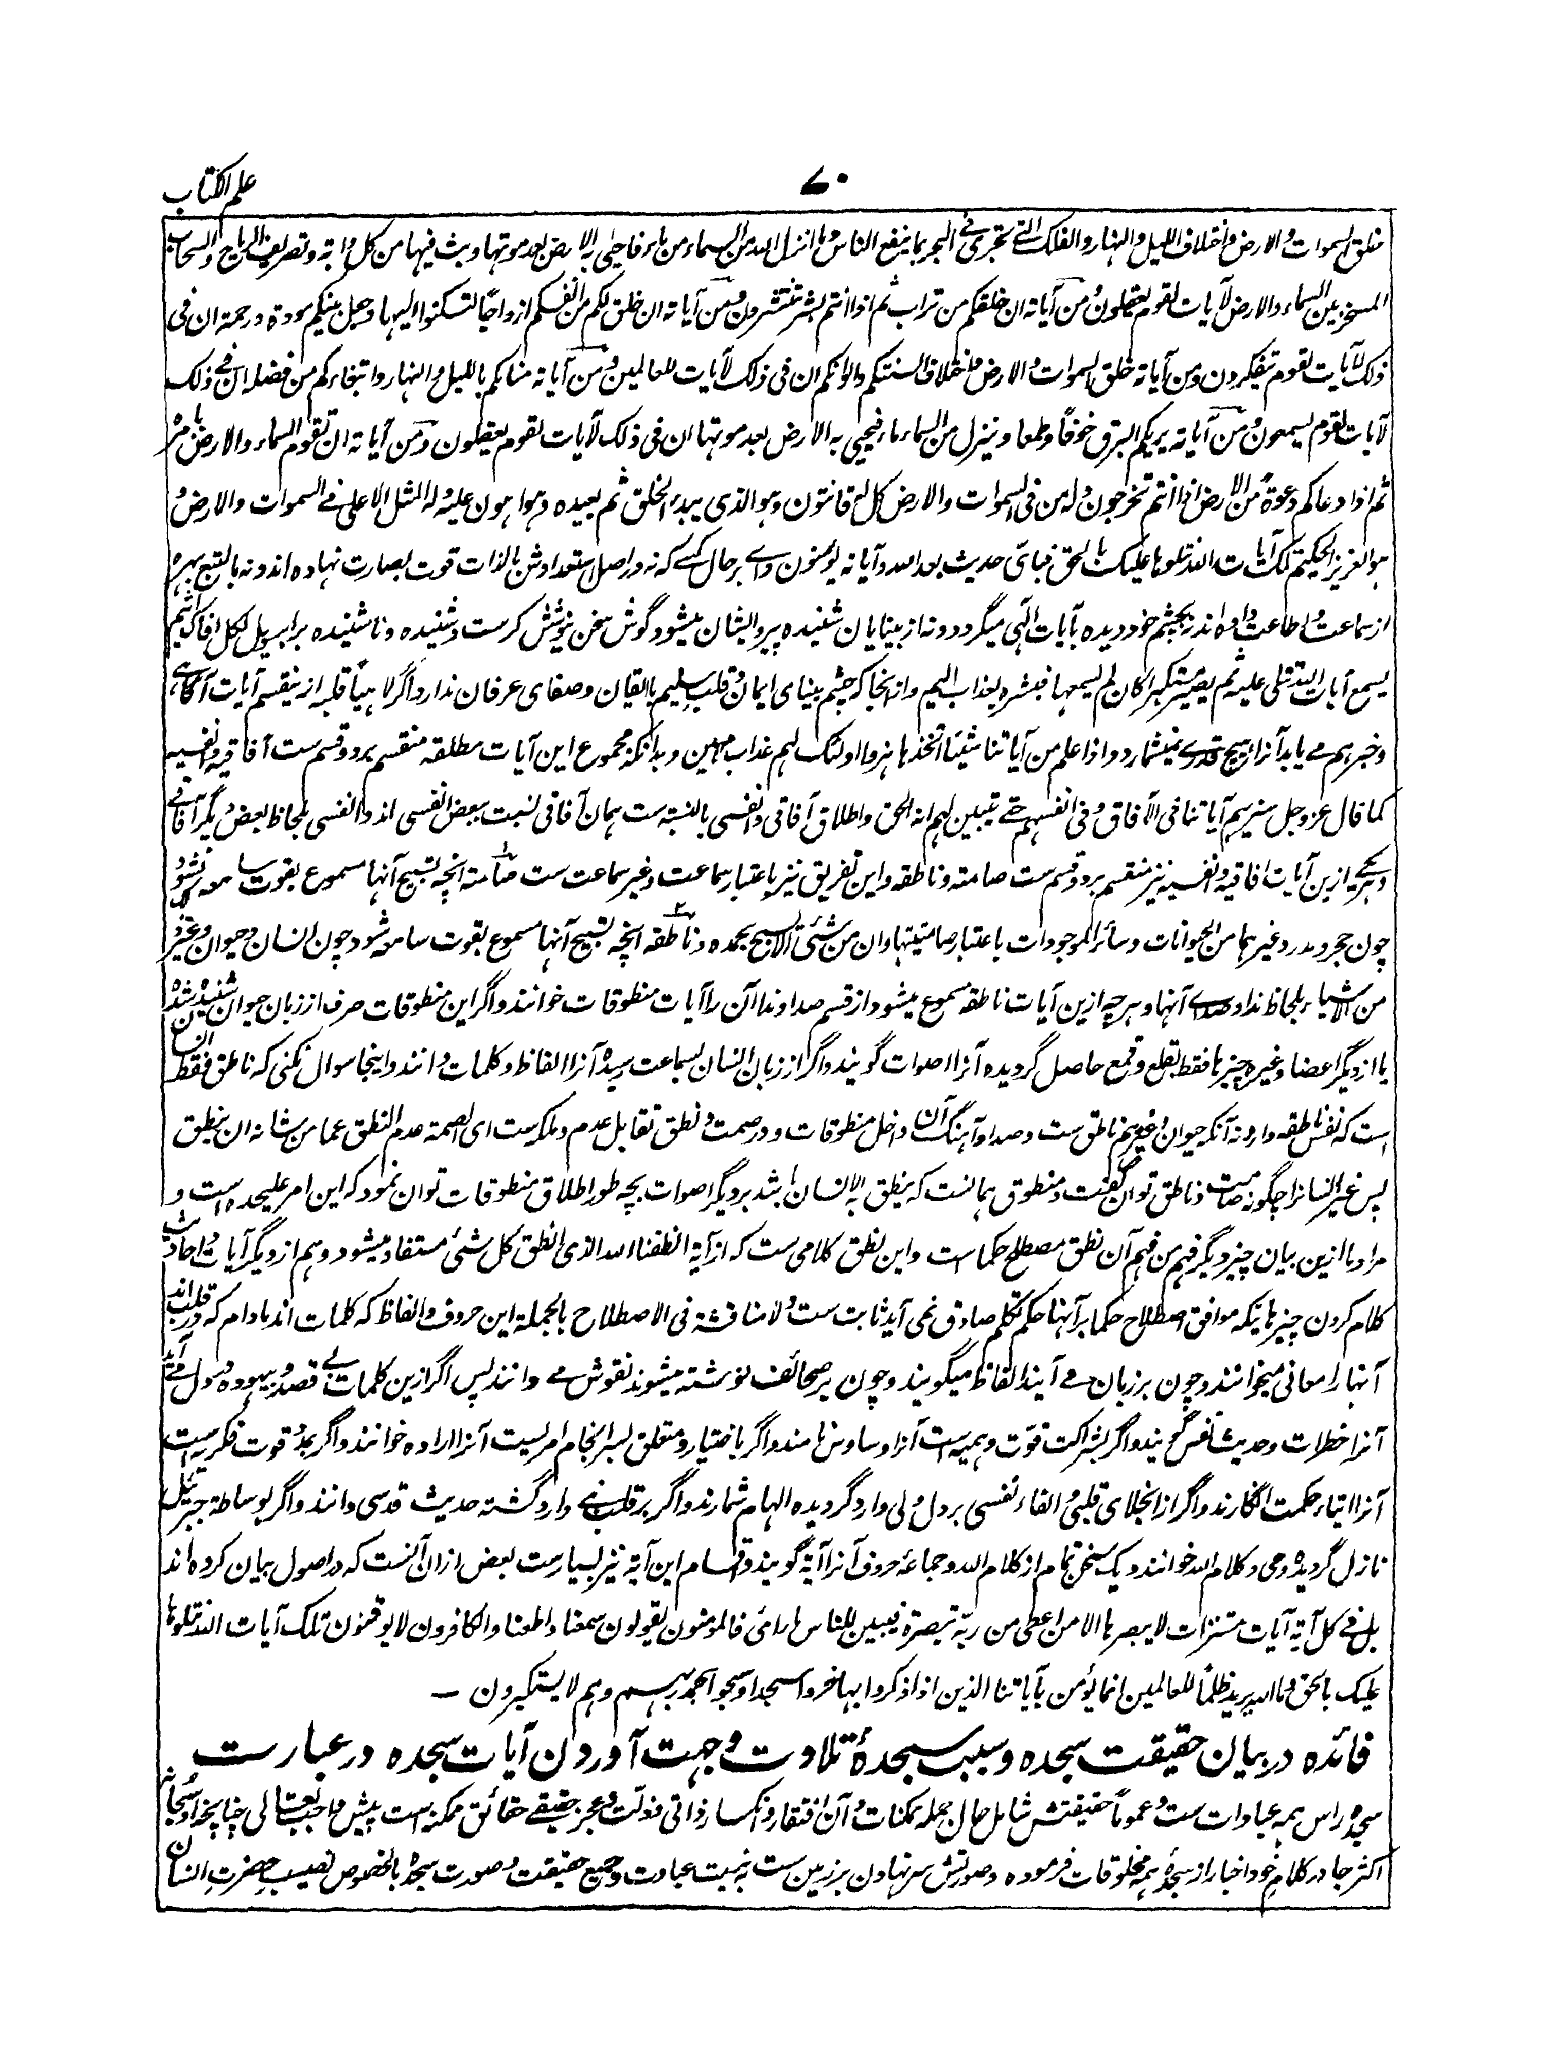 علم الکتاب
۷۰
خلق السموات و الارض و اختلاف اللیل و النهار و الفلک التی تجری فی البحر بما ینفع الناس و ما انزل الله من السماء من ماء فاحیی به الارض بعد موتها و بث فیها من کل دابة و تصریف الریاح و السحاب
المسخر بین السماء و الارض لآیات لقوم یعقلون و من آیاته ان خلقکم من تراب ثم اذا انتم بشر تنتشرون و من آیاته ان خلق لکم من انفسکم ازواجاً لتسکنوا الیها و جعل بینکم مودة و رحمة ان فی
ذلک لآیات لقوم یتفکرون و من آیاته خلق السموات و الارض و اختلاف السنتکم و الوانکم ان فی ذلک لآیات للعالمین و من آیاته منامکم باللیل و النهار و ابتغاءکم من فضله ان فی ذلک
لآیات لقوم یسمعون و من آیاته یریکم البرق خوفاً و طمعا و ینزل من السماء ماء فیحیی به الارض بعد موتها ان فی ذلک لآیات لقوم یعقلون و من آیاته ان تقوم السماء و الارض بامره
ثم اذا دعاکم دعوة من الارض اذا انتم تخرجون و له من فی السموات و الارض کل له قانتون و هو الذی یبدء الخلق ثم یعیده و هو اهون علیه و له المثل الاعلی فی السموات و الارض و
هو العزیز الحکیم تلک آیات الله نتلوها علیک بالحق فبای حدیث بعد الله و آیاته یؤمنون وای بر حال کسے که نه در اصل استعدادش بالذات قوت بصارت نهاده اند و نه بالتبع بهره
از سماعت و اطاعت داده اند نه بچشم خود دیده بآیات الٰهی میگردد و نه از بینایان شنیده پیرو ایشان میشود گوش سخن نیوشش کرست و شنیده و ناشنیده برابر ویل لکل افاک اثیم
یسمع آیات الله تتلی علیه ثم یصر مستکبرا کان لم یسمعها فبشره بعذاب الیم و از آنجا که چشم بینای ایمان و قلب سلیم با ایقان و صفای عرفان ندارد اگر لاهیاً قلبه ازین قسم آیات آگاهی
و خبر هم می یابد آنرا هیچ قدرے نمیشمارد و اذا علم من آیاتنا شیئا اتخذها هزوا اولئک لهم عذاب مهین و بدانکه مجموع این آیات مطلقه منقسم بر دو قسم ست آفاقیه و انفسیه
کما قال عز و جل سنریهم آیاتنا فی الآفاق و فی انفسهم حتے یتبین لهم انه الحق و اطلاق آفاقی و انفسی بالنسبة ست همان آفاقی نسبت ببعض انفسی اند و انفسی بلحاظ بعض دیگر آفاقے
و هر یکے ازین آیات افاقیه و انفسیه نیز منقسم بر دو قسم ست صامته و ناطقه و این تفریق نیز باعتبار سماعت و غیر سماعت ست صامته انچه تسبیح آنها مسموع بقوت سامعه نشود
چون حجر و مدر و غیرهما من الحیوانات و سائر الموجودات باعتبار صامتیتها و ان من شئ الا یسبح بحمده و ناطقه انچه تسبیح آنها مسموع بقوت سامعه شود چون انسان و حیوان و غیره
من الاشیاء بلحاظ ندا و صدای آنها و هر چه ازین آیات ناطقه مسموع میشود از قسم صدا و ندا آن را آیات منطوقات خوانند و اگر این منطوقات صرف از زبان حیوان شنیده شده
یا از دیگر اعضا و غیره چیزها فقط بقلع و قمع حاصل گردیده آنرا اصوات گویند و اگر از زبان انسان بسماعت رسیده آنرا الفاظ و کلمات دانند و اینجا سوال نکنی که ناطق فقط انسان
است که نفس ناطقه دارد نه آنکه حیوان و غیره هم ناطق ست و صدا و آهنگ آن داخل منطوقات و در صمت و نطق تقابل عدم و ملکه ست ای الصمة عدم النطق عما من شانه ان ینطق
پس غیر انسان را چگونه صامت و ناطق توان گفت و منطوق همانست که ینطق به الانسان باشد بر دیگر اصوات بچه طور اطلاق منطوقات توان نمود که این امر علیحده است و
مراد ما ازین بیان چیز دیگر فهم من فهم آن نطق مصطلح حکما است و این نطق کلامی ست که از آیه انطقنا الله الذی انطق کل شئ مستفاد میشود و هم از دیگر آیات و احادیث
کلام کردن چیزهائیکه موافق اصطلاح حکما بر آنها حکم تکلم صادق نمی آید ثابت ست و لا مناقشة فی الاصطلاح بالجمله این حروف و الفاظ که کلمات اند مادام که در قلب اند
آنها را معانی میخوانند و چون بر زبان می آیند الفاظ میگویند و چون بر صحائف نوشته میشوند نقوش مے دانند پس اگر ازین کلمات بے قصد و بیهوده در دل مے آید
آنرا خطرات و حدیث نفس گویند و اگر بشراکت قوّت وهمیه است آنرا وساوس نامند و اگر باختیار و متعلق بسرانجام امریست آنرا اراده خوانند و اگر بمدد قوت فکریه است
آنرا القاء حکمت انگارند و اگر از انجلای قلبی و القاء نفسی بر دل ولی وارد گردیده الهام شمارند و اگر بر قلب نبی وارد گشته حدیث قدسی دانند و اگر بوساطة جبرئیل
نازل گردیده وحی و کلام الله خوانند و یک سخن تمام از کلام الله و جماعهٔ حروف آنرا آیة گویند و اقسام این آیة نیز بسیارست بعض ازان آنست که در اصول بیان کرده اند
بل فی کل آیة آیات مستترات لا یبصرها الا من اعطی من ربه تبصرة فیبین للناس ما رأی فالمؤمنون یقولون سمعنا و اطعنا و الکافرون لا یوقنون تلک آیات الله نتلوها
علیک بالحق و ما الله یرید ظلماً للعالمین انما یؤمن بآیاتنا الذین اذا ذکروا بها خروا سجدا و سبحوا بحمد ربهم و هم لا یستکبرون —
فائده در بیان حقیقت سجده و سبب سجدهٔ تلاوت و جهت آوردن آیات سجده در عبارست
سجده راس همه عبادات ست و عموماً حقیقتش شامل حال جمله ممکنات و آن افتقار و انکسار ذاتی و ذلت و عجز حقیقے حقائق ممکنه است پیش واجب تعالی چنانچه او سبحانه
اکثر جا در کلام خود اخبار از سجدهٔ همه مخلوقات فرموده و صورتش سر نهادن بر زمین ست به نیت عبادت و جمیع حقیقت و صورت سجده بالخصوص نصیب حضرت انسان